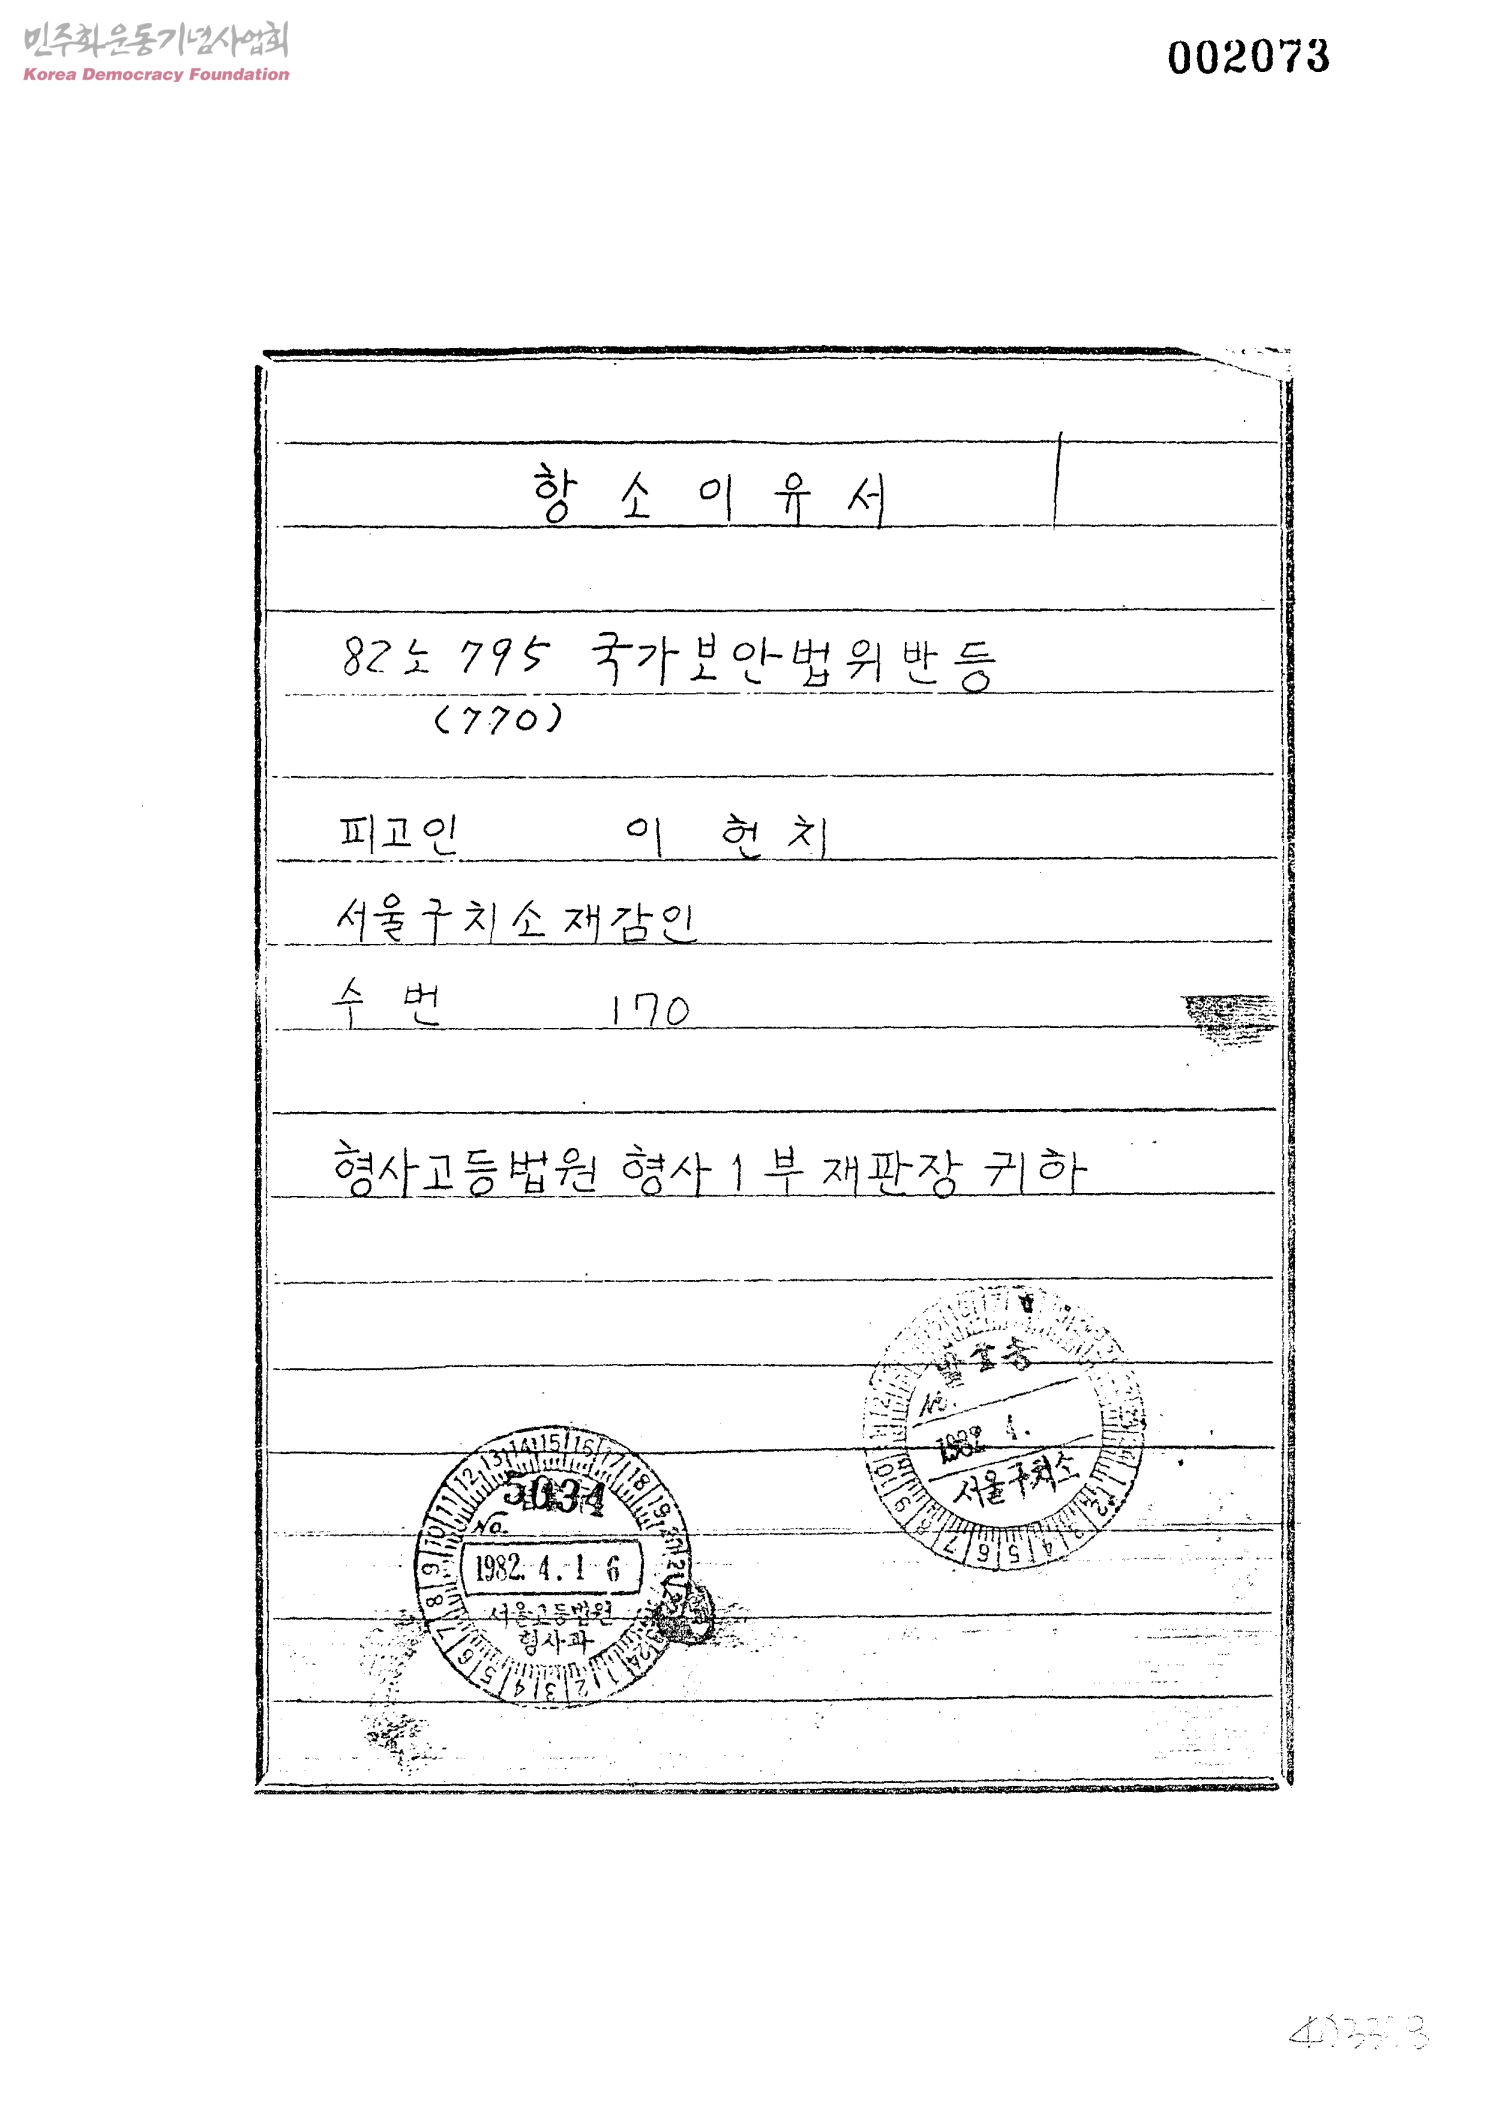 민주화운동기념사업회
Korea Democracy Foundation
002073
항 소 이 유 서
82노 795 국가보안법위반등
(770)
피고인 이 헌 치
서울구치소재감인
수 번 170
형사고등법원 형사1부 재판장 귀하
No.
1982 4.
서울구치소
5034
No.
1982. 4. 1 6
서울고등법원
형사과